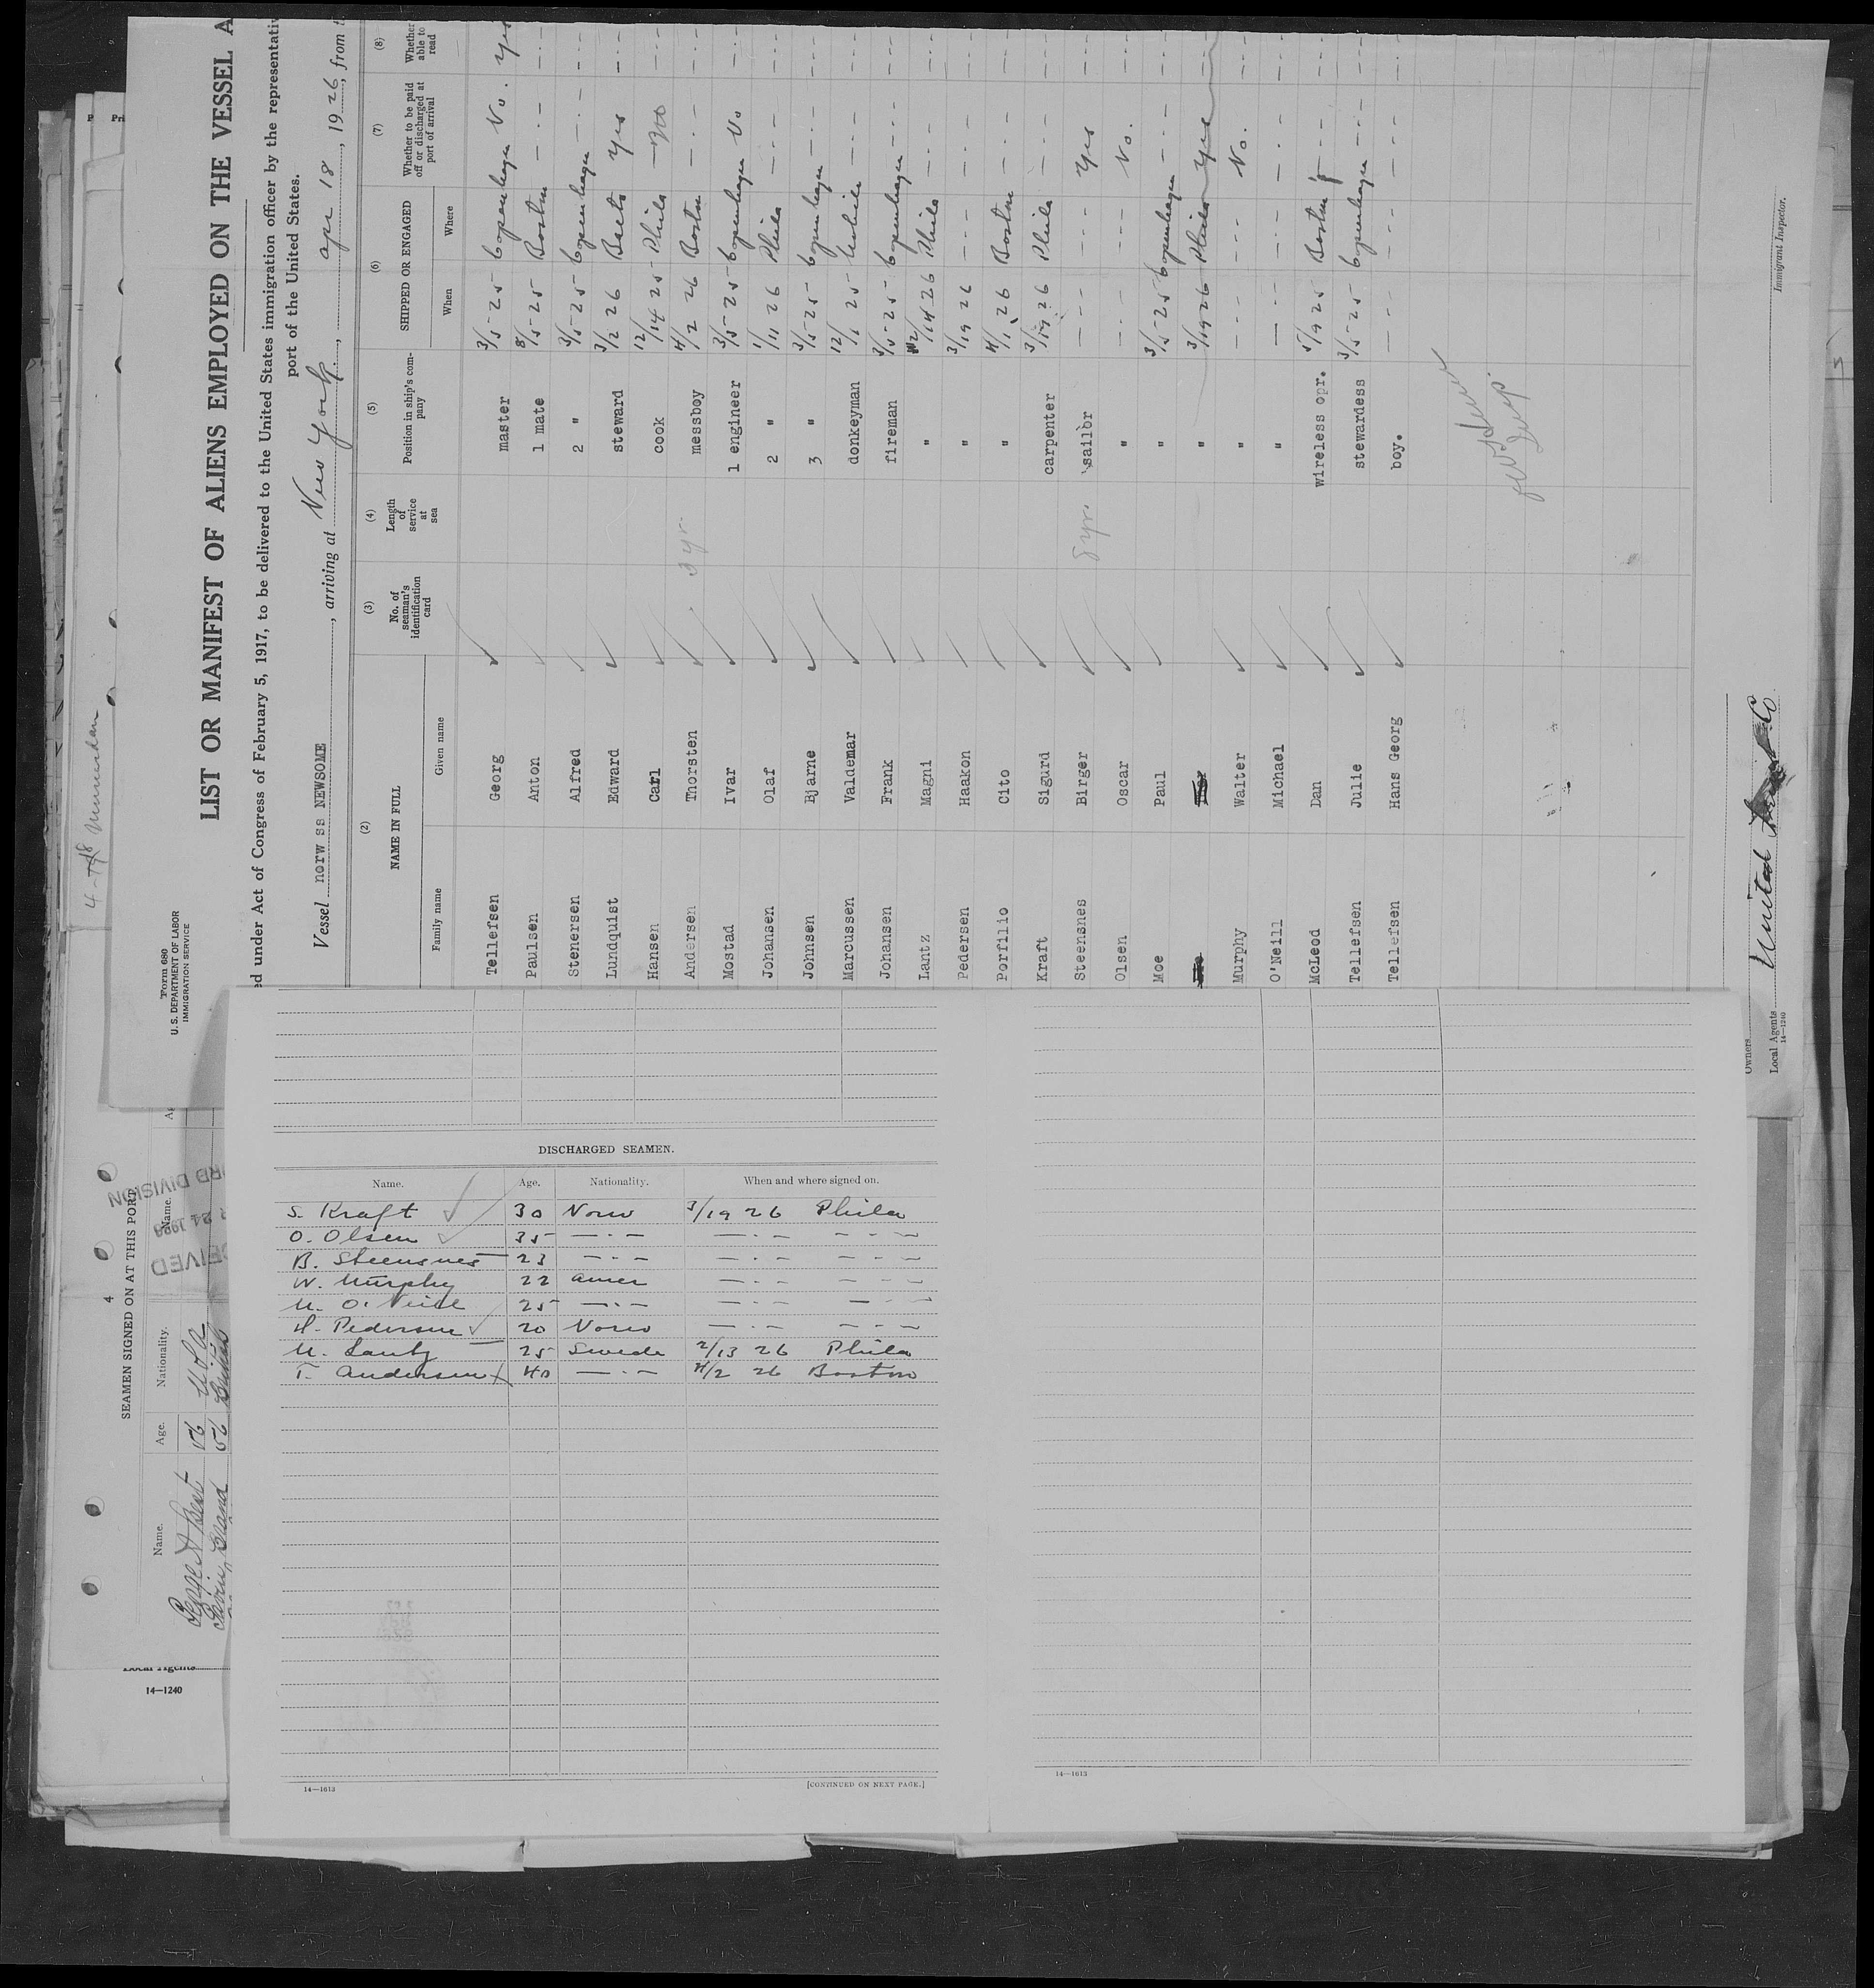 4-18
Form 680
U. S. DEPARTMENT OF LABOR
IMMIGRATION SERVICE
LIST OR MANIFEST OF ALIENS EMPLOYED ON THE VESSEL A
ed under Act of Congress of February 5, 1917, to be delivered to the United States immigration officer by the representativ
port of the United States.
Vessel norw ss NEWSOME, arriving at New York, apr 18, 1926, from
(2) (3) (4) (5) (6) (7) (8)
NAME IN FULL
Family name Given name
No. of seaman's identification card
Length of service at sea
Position in ship's company
SHIPPED OR ENGAGED
When Where
Whether to be paid off or discharged at port of arrival
Whether able to read
Tellefsen Georg master 3/5-25 Copenhagen No. Yes
Paulsen Anton 1 mate 8/5-25 Boston — · — — · —
Stenersen Alfred 2 " 3/5-25 Copenhagen — · — — · —
Lundquist Edward steward 3/2 26 Yes — · —
Hansen Carl cook 12/14 25 Phila No — · —
Andersen Thorsten 3 yr. messboy 4/2 26 Boston — · — — · —
Mostad Ivar 1 engineer 3/5-25 Copenhagen No — · —
Johansen Olaf 2 " 1/11 26 Phila — · — — · —
Johnsen Bjarne 3 " 3/5-25 Copenhagen — · — — · —
Marcussen Valdemar donkeyman 12/1 25 Mobile — · — — · —
Johansen Frank fireman 3/5-25 Copenhagen — · — — · —
Lantz Magni " 2/14 26 Phila — · — — · —
Pedersen Haakon " 3/19 26 — · — — · — — · —
Porfilio Cito " 4/1 26 Boston — · — — · —
Kraft Sigurd carpenter 3/19 26 Phila — · — — · —
Steensnes Birger 5 yr. sailor — · — — · — Yes — · —
Olsen Oscar " — · — — · — No. — · —
Moe Paul " 3/5-25 Copenhagen — · — — · —
" 3/19 26 Phila Yes — · —
Murphy Walter " — · — — · — No. — · —
O'Neill Michael " — · — — · — — · — — · —
McLeod Dan wireless opr. 5/19 25 Boston — · — — · —
Tellefsen Julie stewardess 3/5-25 Copenhagen — · — — · —
Tellefsen Hans Georg boy. — · — — · — — · — — · —
Immigrant Inspector.
Owners
Local Agents United Fruit Co.
14—1240
DISCHARGED SEAMEN.
Name. Age. Nationality. When and where signed on.
S. Kraft 30 Norw 3/19 26 Phila
O. Olsen 35 — · — — · — — · —
B. Steensnes 23 — · — — · — — · —
W. Murphy 22 amer — · — — · —
M. O'Neill 25 — · — — · — — · —
H. Pedersen 20 Norw — · — — · —
M. Lantz 25 Swede 2/13 26 Phila
T. Andersen 40 — · — 4/2 26 Boston
14—1613
[CONTINUED ON NEXT PAGE.]
14—1613
4
SEAMEN SIGNED ON AT THIS PORT
Name. Age. Nationality. Name.
56 USA
56
Local Agents
14—1240